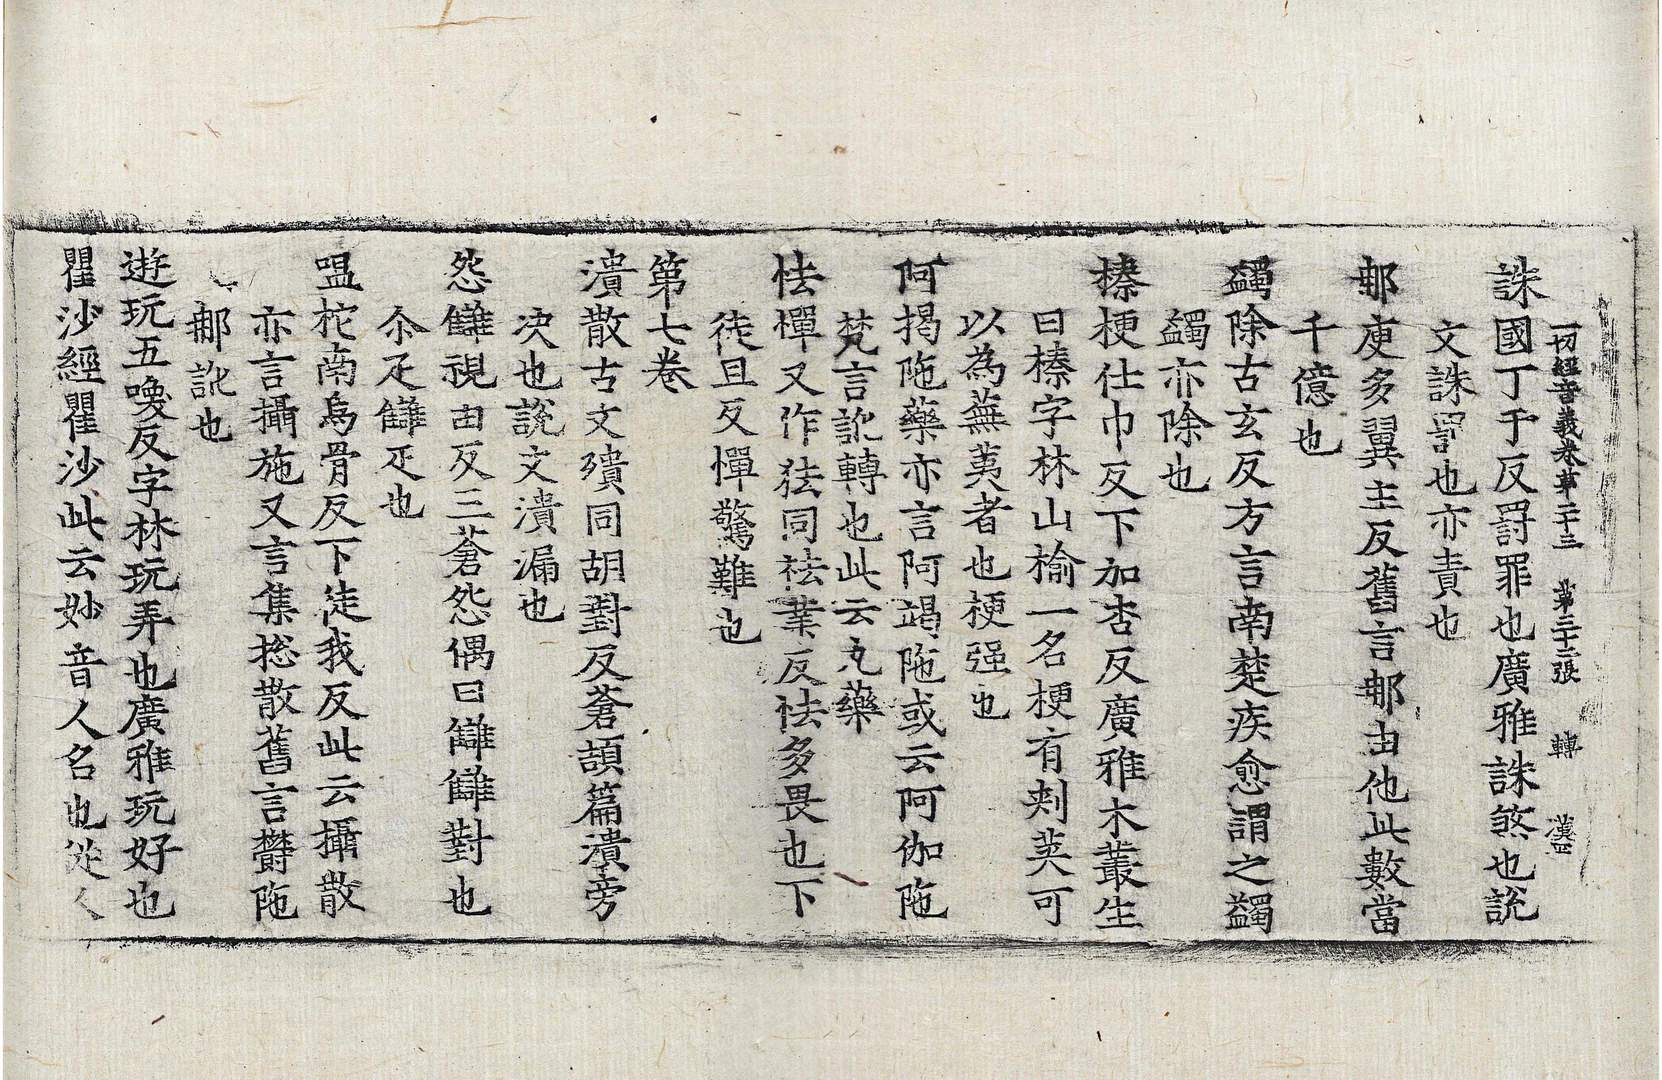 一切經音義卷第二十三 第三十二張 轉
誅國丁于反罸罪也廣雅誅煞也說
文誅罸也亦責也
郍庾多翼主反舊言郍由他此數當
千億也
蠲除古玄反方言南楚疾愈謂之蠲
蠲亦除也
榛梗仕巾反下加杏反廣雅木叢生
曰榛字林山榆一名梗有刾莢可
以為蕪荑者也梗强也
阿揭陁藥亦言阿竭陁或云阿伽陁
梵言訛轉也此云丸藥
怯憚又作㹤同祛業反怯多畏也下
徒旦反憚驚難也
第七卷
潰散古文殨同胡對反蒼頡篇潰旁
决也說文潰漏也
怨讎視由反三蒼怨偶曰讎讎對也
尒疋讎疋也
嗢柁南烏骨反下徒我反此云攝散
亦言攝施又言集捴散舊言欝陁
郍訛也
遊玩五喚反字林玩弄也廣雅玩好也
瞿沙經瞿沙此云妙音人名也從人